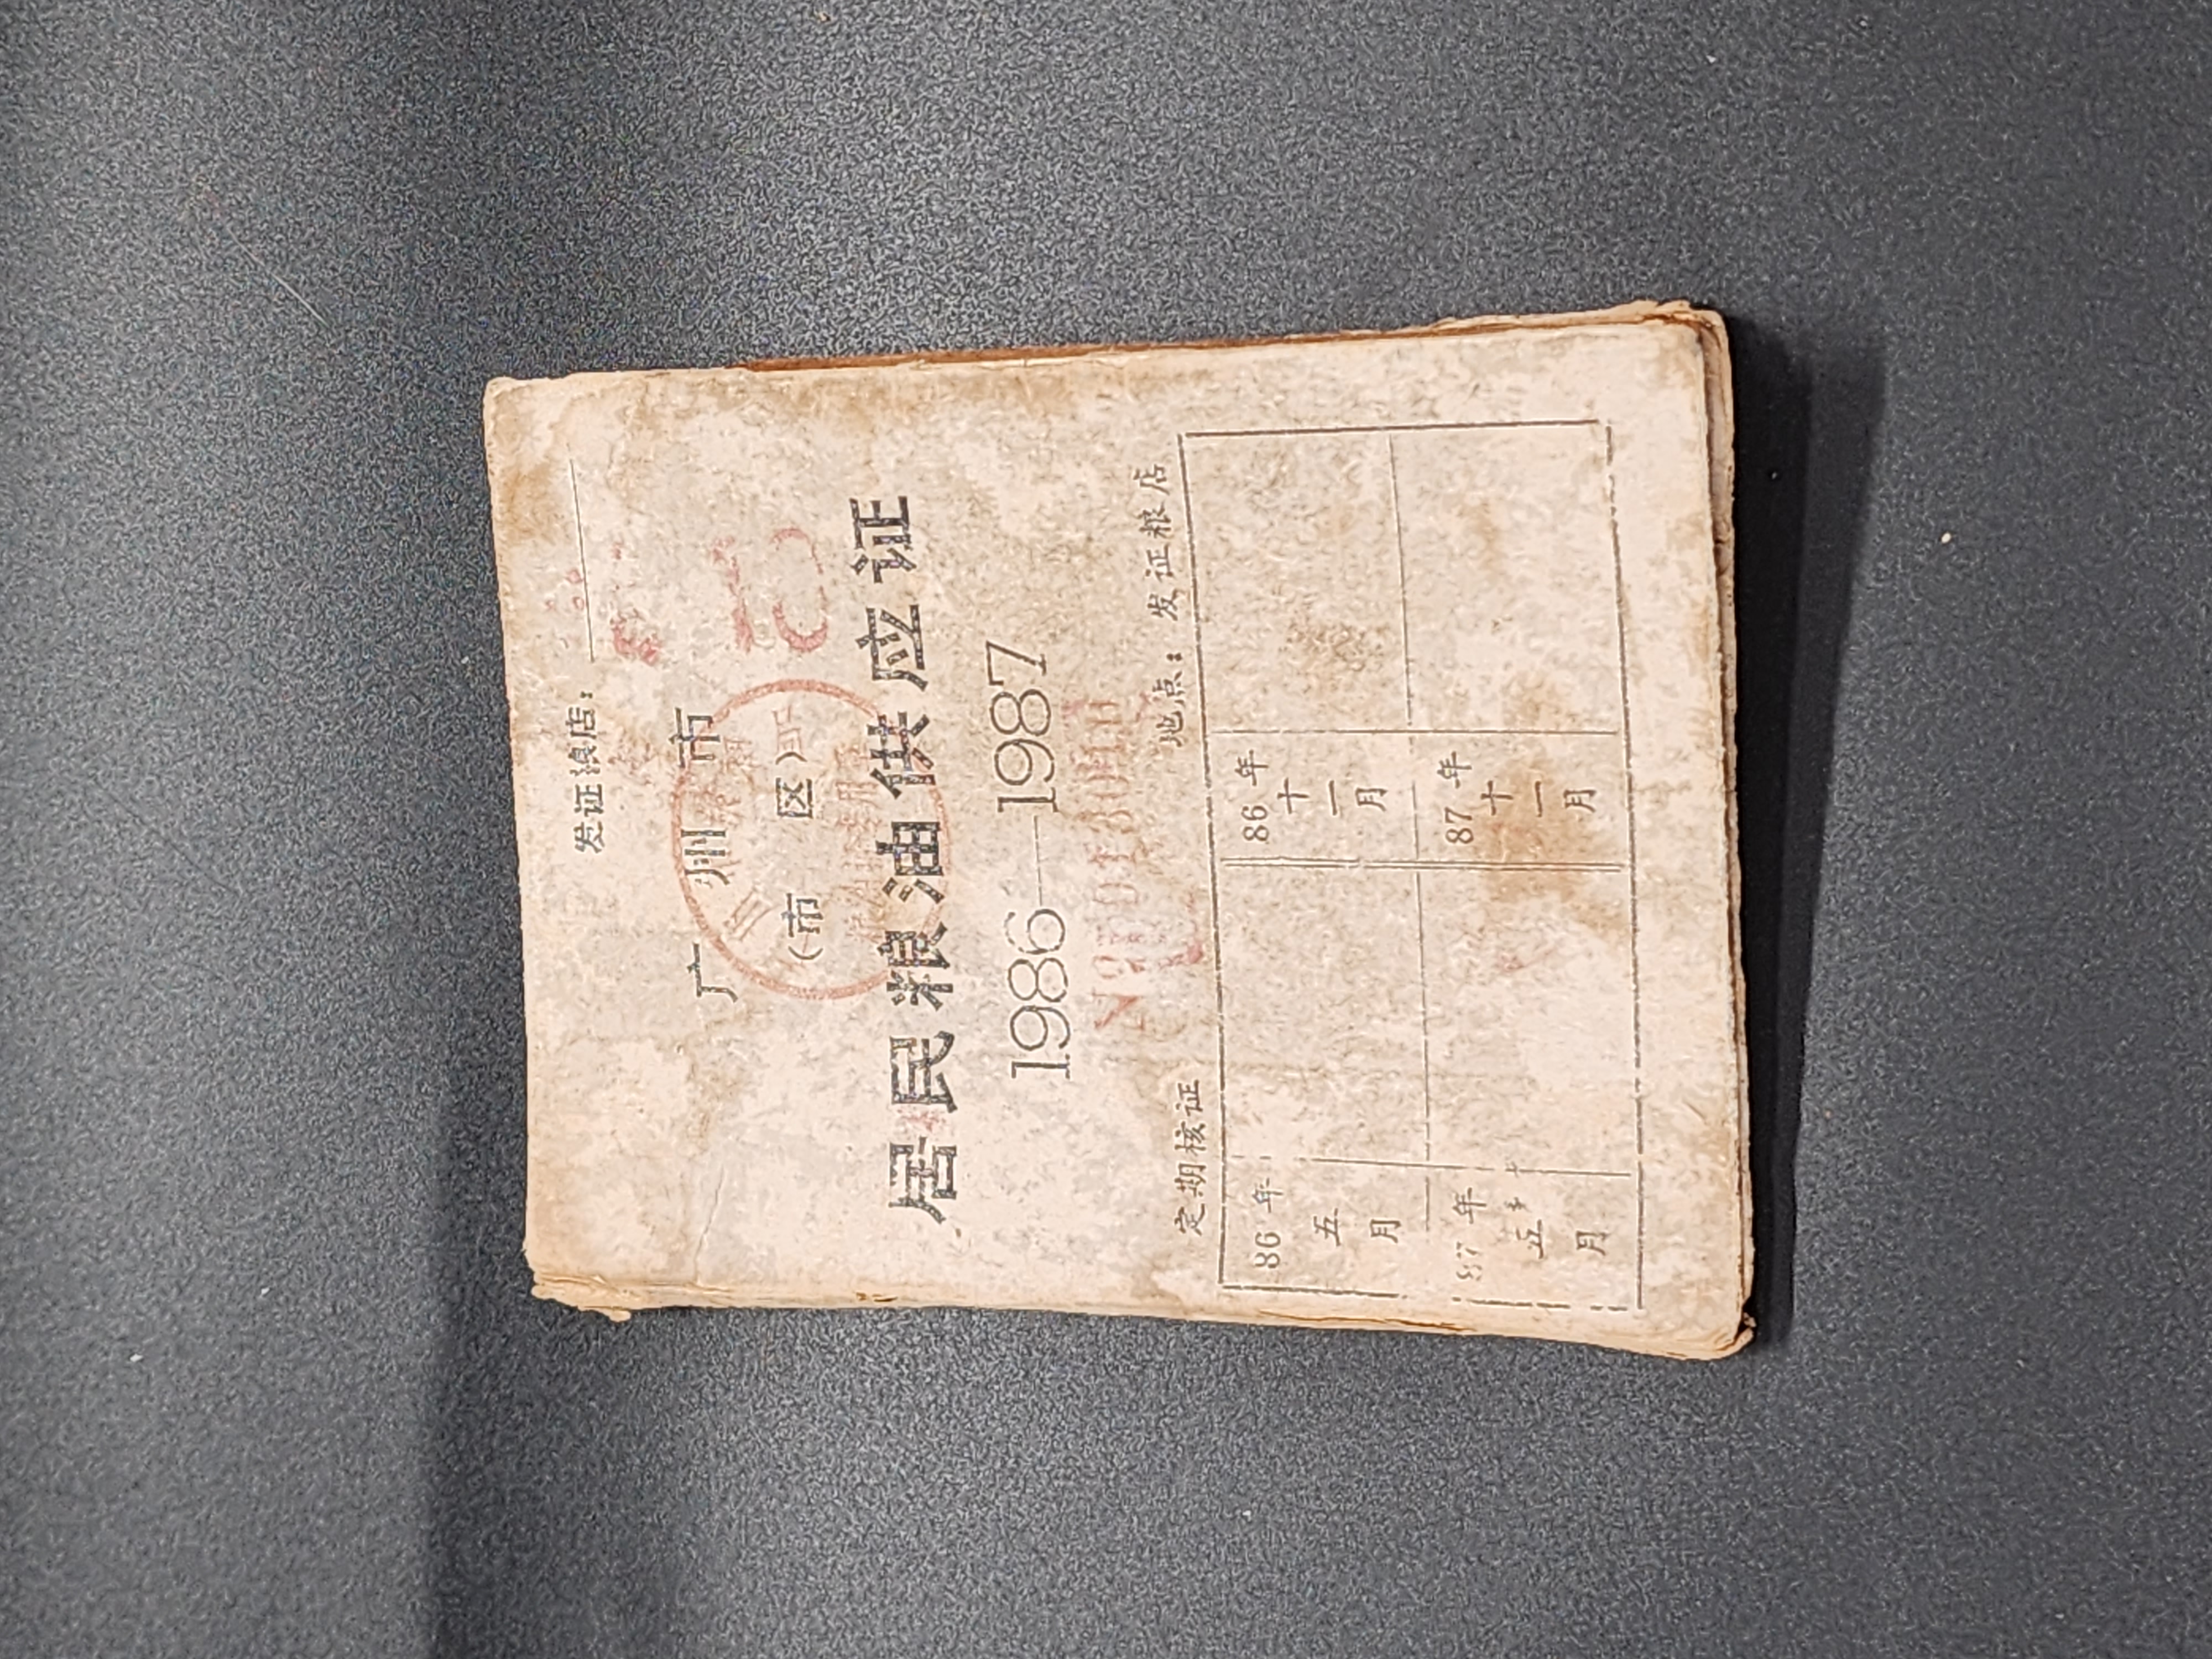 发证粮店：
广州市
（市区）
居民粮油供应证
1986—1987
定期核证 地点：发证粮店
86年五月 86年十一月
87年五月 87年十一月